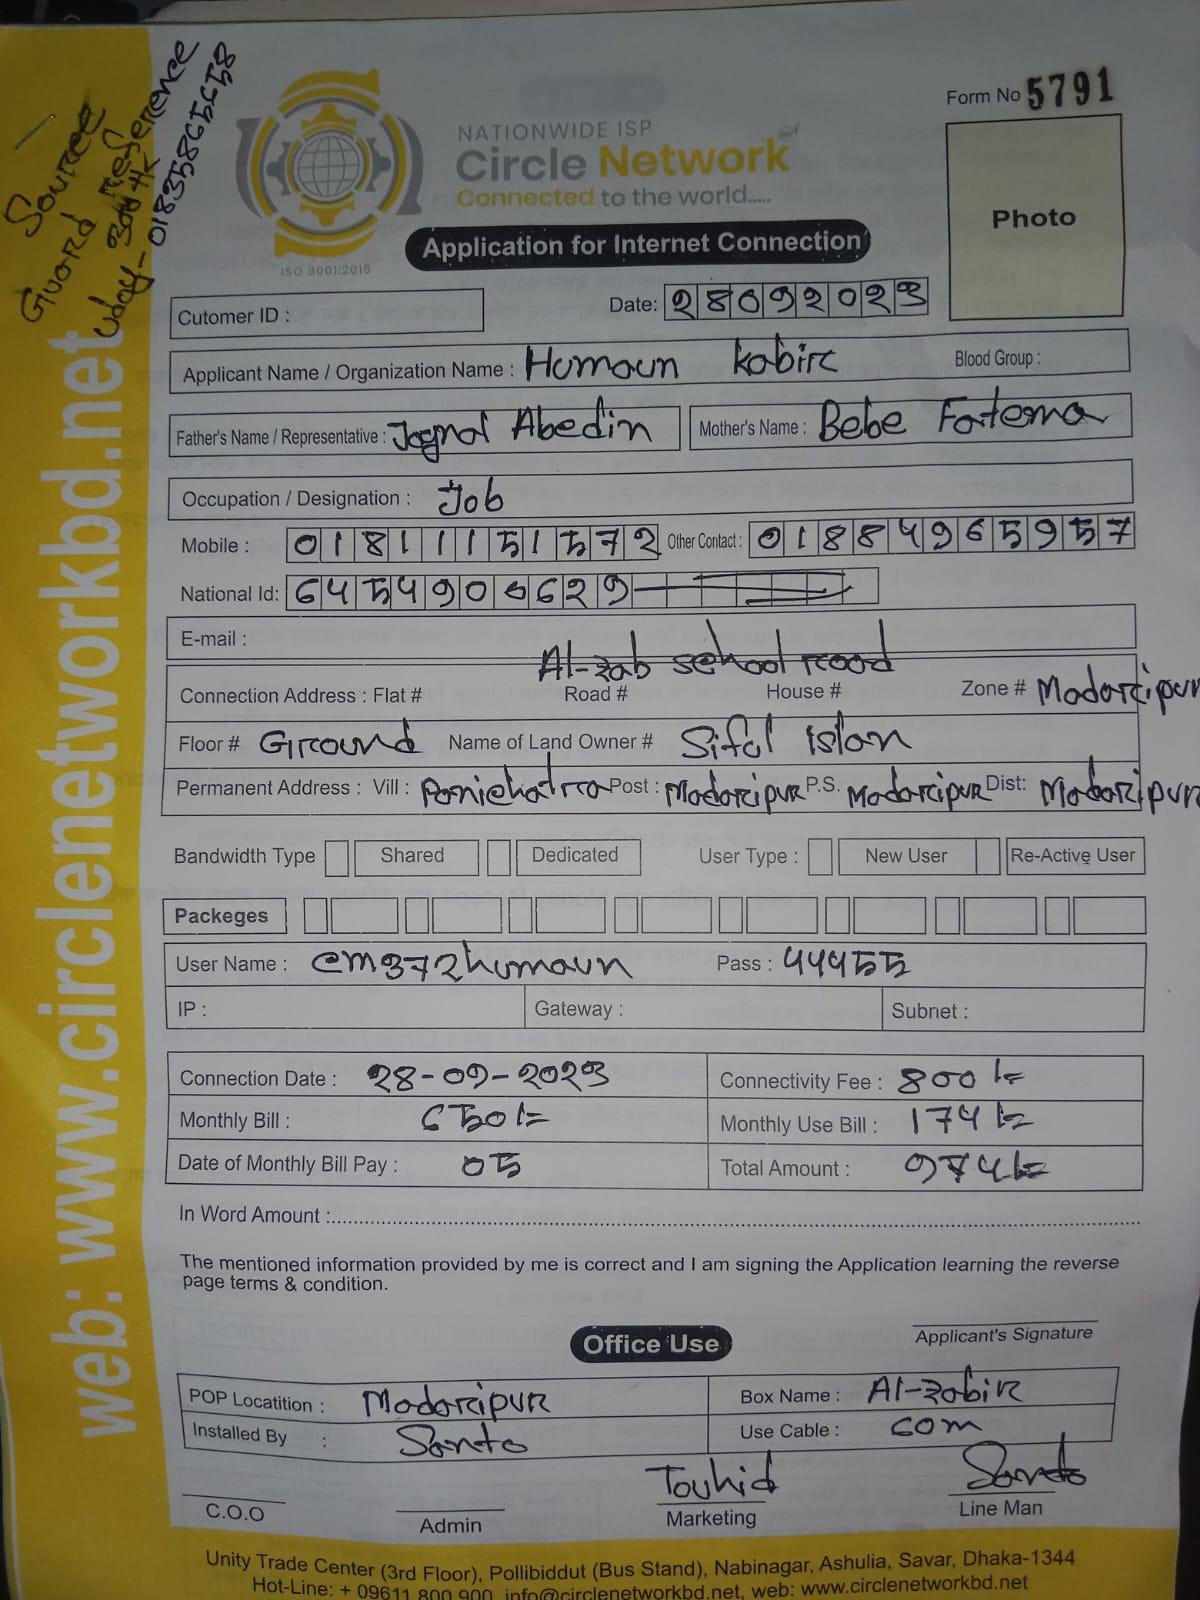 Source
Guard Reference
300 tk
Uday - 01835865658
Form No 5791
NATIONWIDE ISP
Circle Network
Connected to the world.....
ISO 9001:2015
Photo
Application for Internet Connection
Cutomer ID :
Date: 28092023
Applicant Name / Organization Name : Humaun kabir
Blood Group :
Father's Name / Representative : Joynal Abedin
Mother's Name : Bebe Fatema
Occupation / Designation : Job
Mobile : 01811151572 Other Contact : 01884965957
National Id: 6454906629
E-mail :
Al-zab school road
Connection Address : Flat # Road # House # Zone # Madaripur
Floor # Ground Name of Land Owner # Siful islam
Permanent Address : Vill : Panichatra Post : Madaripur P.S. Madaripur Dist: Madaripur
Bandwidth Type Shared Dedicated User Type : New User Re-Active User
Packeges
User Name : cm372humaun Pass : 44455
IP : Gateway : Subnet :
Connection Date : 28-09-2023 Connectivity Fee : 800/=
Monthly Bill : 650/= Monthly Use Bill : 174/=
Date of Monthly Bill Pay : 05 Total Amount : 974/=
In Word Amount :
The mentioned information provided by me is correct and I am signing the Application learning the reverse
page terms & condition.
Applicant's Signature
Office Use
POP Locatition : Madaripur Box Name : Al-zabir
Installed By : Santo Use Cable : 60m
Touhid Santo
C.O.O Admin Marketing Line Man
Unity Trade Center (3rd Floor), Pollibiddut (Bus Stand), Nabinagar, Ashulia, Savar, Dhaka-1344
Hot-Line: + 09611 800 900, info@circlenetworkbd.net, web: www.circlenetworkbd.net
web: www.circlenetworkbd.net